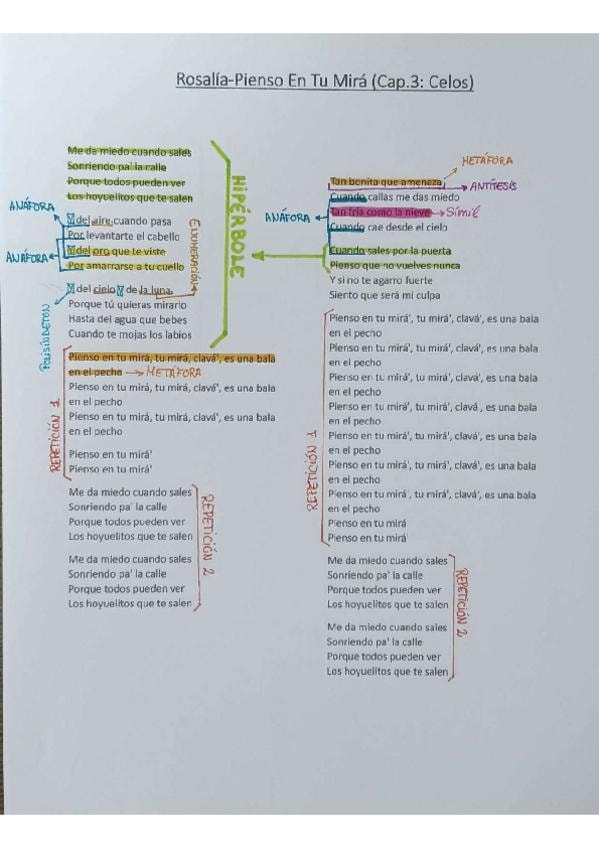 Rosalía-Pienso En Tu Mirá (Cap.3: Celos)
Me da miedo cuando sales
Sonriendo pa' la calle
Porque todos pueden ver
Los hoyuelitos que te salen
HIPÉRBOLE
ANÁFORA
Y del aire cuando pasa
Por levantarte el cabello
ANÁFORA
Y del oro que te viste
Por amarrarse a tu cuello
ENUMERACIÓN
Y del cielo Y de la luna,
Porque tú quieras mirarlo
Hasta del agua que bebes
Cuando te mojas los labios
POLISÍNDETON
Pienso en tu mirá, tu mirá, clavá', es una bala
en el pecho → METÁFORA
Pienso en tu mirá, tu mirá, clavá', es una bala
en el pecho
Pienso en tu mirá, tu mirá, clavá', es una bala
en el pecho
Pienso en tu mirá'
Pienso en tu mirá'
REPETICIÓN 1
Me da miedo cuando sales
Sonriendo pa' la calle
Porque todos pueden ver
Los hoyuelitos que te salen
Me da miedo cuando sales
Sonriendo pa' la calle
Porque todos pueden ver
Los hoyuelitos que te salen
REPETICIÓN 2
METÁFORA
Tan bonita que amenaza
ANTÍTESIS
Cuando callas me das miedo
ANÁFORA
Tan fría como la nieve → Símil
Cuando cae desde el cielo
Cuando sales por la puerta
Pienso que no vuelves nunca
Y si no te agarro fuerte
Siento que será mi culpa
Pienso en tu mirá', tu mirá', clavá', es una bala
en el pecho
Pienso en tu mirá', tu mirá', clavá', es una bala
en el pecho
Pienso en tu mirá', tu mirá', clavá', es una bala
en el pecho
Pienso en tu mirá', tu mirá', clavá', es una bala
en el pecho
Pienso en tu mirá', tu mirá', clavá', es una bala
en el pecho
Pienso en tu mirá', tu mirá', clavá', es una bala
en el pecho
Pienso en tu mirá', tu mirá', clavá', es una bala
en el pecho
Pienso en tu mirá
Pienso en tu mirá'
REPETICIÓN 1
Me da miedo cuando sales
Sonriendo pa' la calle
Porque todos pueden ver
Los hoyuelitos que te salen
Me da miedo cuando sales
Sonriendo pa' la calle
Porque todos pueden ver
Los hoyuelitos que te salen
REPETICIÓN 2